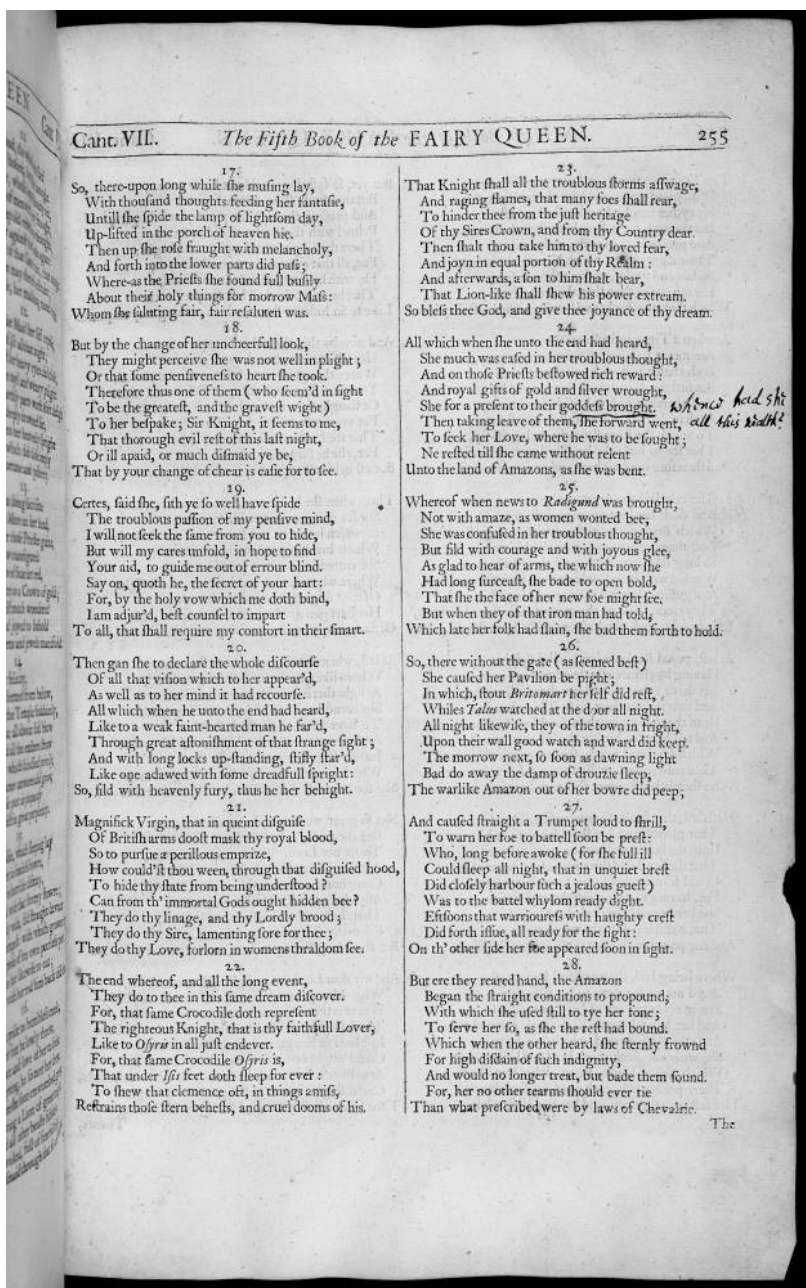 Cant. VII. The Fifth Book of the FAIRY QUEEN. 255
17.
So, there-upon long while ſhe muſing lay,
With thouſand thoughts feeding her fantaſie,
Untill ſhe ſpide the lamp of lightſom day,
Up-lifted in the porch of heaven hie.
Then up ſhe roſe fraught with melancholy,
And forth into the lower parts did paſs;
Where-as the Prieſts ſhe found full buſily
About their holy things for morrow Maſs:
Whom ſhe ſaluting fair, fair reſaluten was.
18.
But by the change of her uncheerfull look,
They might perceive ſhe was not well in plight;
Or that ſome penſiveneſs to heart ſhe took.
Therefore thus one of them (who ſeem'd in ſight
To be the greateſt, and the graveſt wight)
To her beſpake; Sir Knight, it ſeems to me,
That thorough evil reſt of this laſt night,
Or ill apaid, or much diſmaid ye be,
That by your change of chear is eaſie for to ſee.
19.
Certes, ſaid ſhe, ſith ye ſo well have ſpide
The troublous paſſion of my penſive mind,
I will not ſeek the ſame from you to hide,
But will my cares unfold, in hope to find
Your aid, to guide me out of errour blind.
Say on, quoth he, the ſecret of your hart:
For, by the holy vow which me doth bind,
I am adjur'd, beſt counſel to impart
To all, that ſhall require my comfort in their ſmart.
20.
Then gan ſhe to declare the whole diſcourſe
Of all that viſion which to her appear'd,
As well as to her mind it had recourſe.
All which when he unto the end had heard,
Like to a weak faint-hearted man he far'd,
Through great aſtoniſhment of that ſtrange ſight;
And with long locks up-ſtanding, ſtifly ſtar'd,
Like one adawed with ſome dreadfull ſpright:
So, fild with heavenly fury, thus he her behight.
21.
Magnifick Virgin, that in queint diſguiſe
Of Britiſh arms dooſt mask thy royal blood,
So to purſue a perillous emprize,
How could'ſt thou ween, through that diſguiſed hood,
To hide thy ſtate from being underſtood?
Can from th' immortal Gods ought hidden bee?
They do thy linage, and thy Lordly brood;
They do thy Sire, lamenting ſore for thee;
They do thy Love, forlorn in womens thraldom ſee.
22.
The end whereof, and all the long event,
They do to thee in this ſame dream diſcover.
For, that ſame Crocodile doth repreſent
The righteous Knight, that is thy faithfull Lover,
Like to Oſyris in all juſt endever.
For, that ſame Crocodile Oſyris is,
That under Iſis feet doth ſleep for ever:
To ſhew that clemence oft, in things amiſs,
Reſtrains thoſe ſtern beheſts, and cruel dooms of his.
23.
That Knight ſhall all the troublous ſtorms aſſwage,
And raging flames, that many foes ſhall rear,
To hinder thee from the juſt heritage
Of thy Sires Crown, and from thy Country dear.
Then ſhalt thou take him to thy loved fear,
And joyn in equal portion of thy Realm:
And afterwards, a ſon to him ſhalt bear,
That Lion-like ſhall ſhew his power extream.
So bleſs thee God, and give thee joyance of thy dream.
24.
All which when ſhe unto the end had heard,
She much was eaſed in her troublous thought,
And on thoſe Prieſts beſtowed rich reward:
And royal gifts of gold and ſilver wrought,
She for a preſent to their goddeſs brought. whence had ſhe
Then taking leave of them, ſhe forward went, all this
To ſeek her Love, where he was to be ſought;
Ne reſted till ſhe came without relent
Unto the land of Amazons, as ſhe was bent.
25.
Whereof when news to Radigund was brought,
Not with amaze, as women wonted bee,
She was confuſed in her troublous thought,
But fild with courage and with joyous glee,
As glad to hear of arms, the which now ſhe
Had long ſurceaſt, ſhe bade to open bold,
That ſhe the face of her new foe might ſee.
But when they of that iron man had told,
Which late her folk had ſlain, ſhe bad them forth to hold.
26.
So, there without the gate (as ſeemed beſt)
She cauſed her Pavilion be pight;
In which, ſtout Britomart her ſelf did reſt,
Whiles Talus watched at the door all night.
All night likewiſe, they of the town in fright,
Upon their wall good watch and ward did keep.
The morrow next, ſo ſoon as dawning light
Bad do away the damp of drouzie ſleep,
The warlike Amazon out of her bowre did peep;
27.
And cauſed ſtraight a Trumpet loud to ſhrill,
To warn her foe to battell ſoon be preſt:
Who, long before awoke (for ſhe full ill
Could ſleep all night, that in unquiet breſt
Did cloſely harbour ſuch a jealous gueſt)
Was to the battel whylom ready dight.
Eftſoons that warrioureſs with haughty creſt
Did forth iſſue, all ready for the fight:
On th' other ſide her foe appeared ſoon in ſight.
28.
But ere they reared hand, the Amazon
Began the ſtraight conditions to propound,
With which ſhe uſed ſtill to tye her fone;
To ſerve her ſo, as ſhe the reſt had bound.
Which when the other heard, ſhe ſternly frownd
For high diſdain of ſuch indignity,
And would no longer treat, but bade them ſound.
For, her no other tearms ſhould ever tie
Than what preſcribed were by laws of Chevalrie.
The